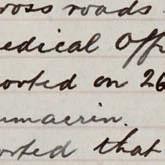 cross roads
edical Offi
orted on 26
umacrin.
orted that